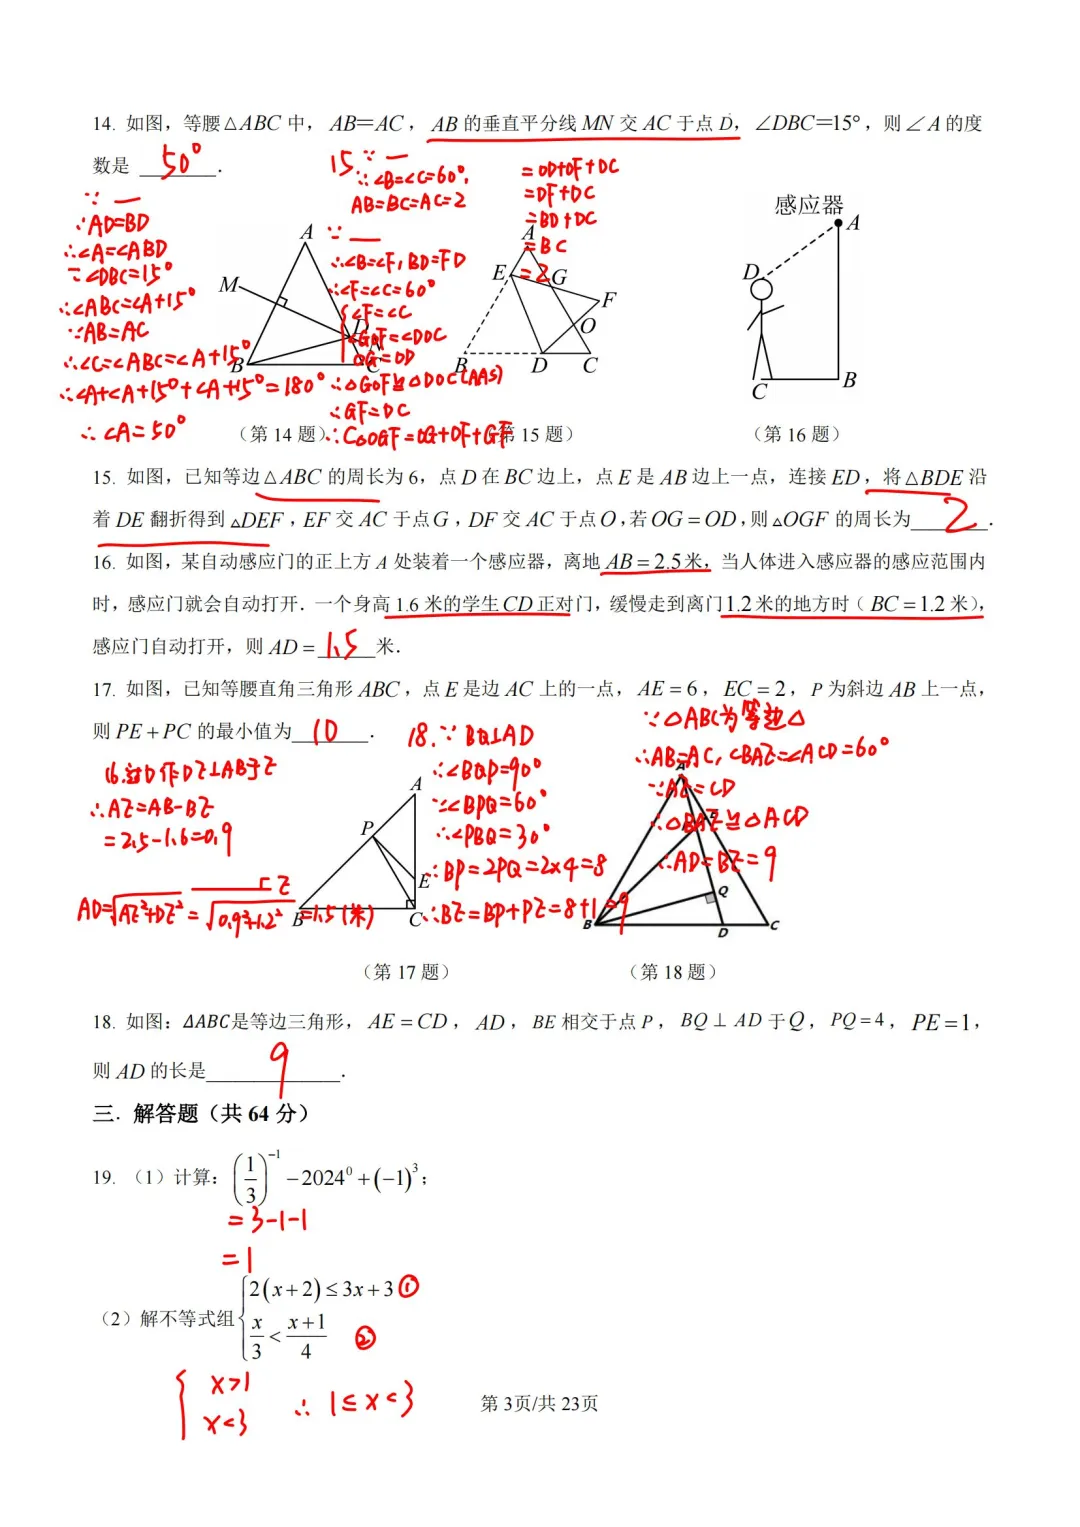 14. 如图，等腰△ABC 中， AB=AC， AB 的垂直平分线 MN 交 AC 于点 D， ∠DBC=15°，则∠A 的度
数是 50° .
∵ —
∴AD=BD
∴∠A=∠ABD
∵∠DBC=15°
∴∠ABC=∠A+15°
∵AB=AC
∴∠C=∠ABC=∠A+15°
∴∠A+∠A+15°+∠A+15°=180°
∴∠A=50°
A
M
D
N
B
C
（第 14 题）
15. ∵ —
∴∠B=∠C=60°,
AB=BC=AC=2
∵ —
∴∠B=∠F, BD=FD
∴∠F=∠C=60°
∠F=∠C
∠GOF=∠DOC
OG=OD
∴△GOF≌△DOC(AAS)
∴GF=DC
∴C△OGF=OG+OF+GF
=OD+OF+DC
=DF+DC
=BD+DC
=BC
=2
A
E
G
F
O
B
D
C
（第 15 题）
感应器
A
D
B
C
（第 16 题）
15. 如图，已知等边△ABC 的周长为 6，点 D 在 BC 边上，点 E 是 AB 边上一点，连接 ED，将△BDE 沿
着 DE 翻折得到 △DEF，EF 交 AC 于点G，DF 交 AC 于点O，若 OG=OD，则△OGF 的周长为 2 .
16. 如图，某自动感应门的正上方 A 处装着一个感应器，离地 AB=2.5米，当人体进入感应器的感应范围内
时，感应门就会自动打开．一个身高 1.6 米的学生CD 正对门，缓慢走到离门1.2米的地方时（ BC=1.2 米），
感应门自动打开，则 AD= 1.5 米．
17. 如图，已知等腰直角三角形 ABC，点 E 是边 AC 上的一点， AE=6， EC=2， P 为斜边 AB 上一点，
则 PE+PC 的最小值为 10 .
16.过D作DE⊥AB于E
∴AE=AB-BE
=2.5-1.6=0.9
AD=√AE²+DE²=√0.9²+1.2²=1.5(米)
E
A
P
E
B
C
（第 17 题）
18.∵BQ⊥AD
∴∠BQP=90°
∵∠BPQ=60°
∴∠PBQ=30°
∴BP=2PQ=2×4=8
∴BE=BP+PE=8+1=9
∵△ABC为等边△
∴AB=AC, ∠BAE=∠ACD=60°
∵AE=CD
∴△BAE≌△ACD
∴AD=BE=9
A
E
Q
B
D
C
（第 18 题）
18. 如图：ΔABC是等边三角形， AE=CD， AD， BE 相交于点 P， BQ⊥AD 于Q， PQ=4， PE=1，
则 AD 的长是 9 .
三．解答题（共 64 分）
19. （1）计算：(1/3)⁻¹−2024⁰+(−1)³；
=3-1-1
=1
（2）解不等式组{2(x+2)≤3x+3 ①
x/3<(x+1)/4 ②
{x>1
x<3
∴ 1≤x<3
第 3页/共 23页